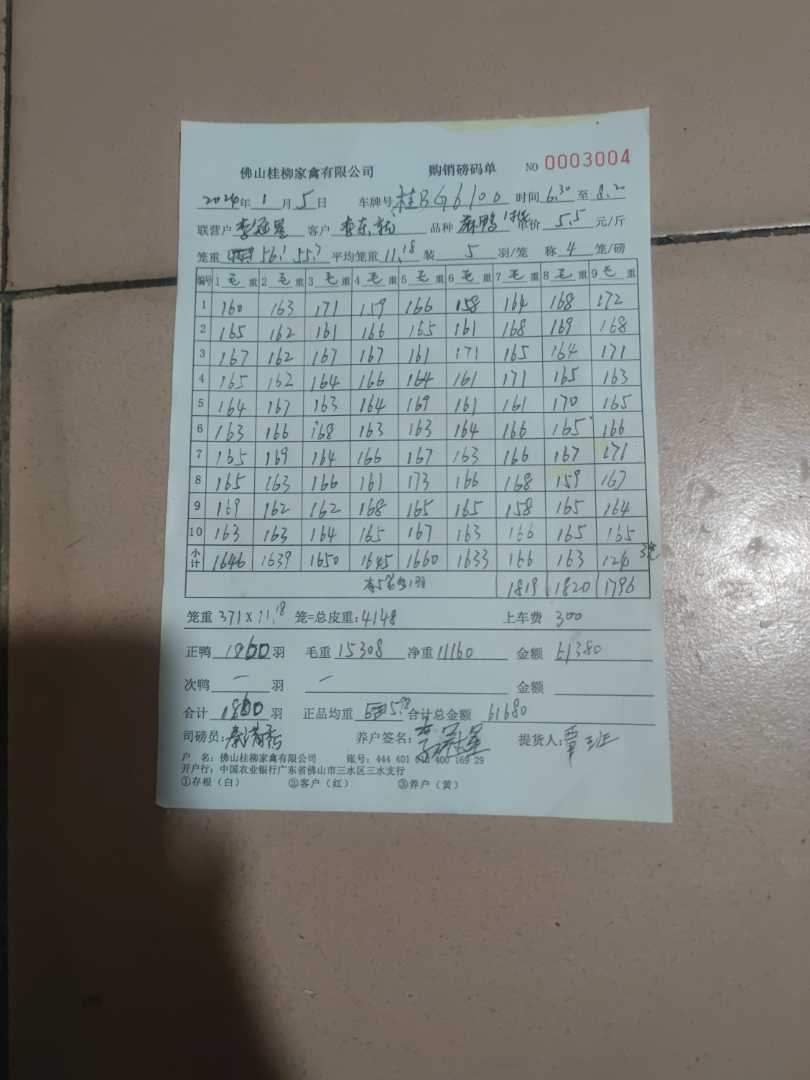 佛山桂柳家禽有限公司 购销磅码单 NO 0003004
2024年 1 月 5 日 车牌号 桂BG6100 时间 6.30 至 8.20
联营户 李冠星 客户 李东 品种 麻鸭 价 5.5 元/斤
笼重 56.1 55.7 平均笼重 11.18 装 5 羽/笼 称 4 笼/磅
编号 1 毛 重 2 毛 重 3 毛 重 4 毛 重 5 毛 重 6 毛 重 7 毛 重 8 毛 重 9 毛 重
1 160 163 171 159 166 158 164 168 172
2 165 162 161 166 165 161 168 169 168
3 167 162 167 167 161 171 165 164 171
4 165 162 164 166 164 161 171 165 163
5 164 167 163 164 169 161 161 170 165
6 163 166 168 163 163 164 166 165 166
7 165 169 164 166 167 163 166 167 171
8 165 163 166 161 173 166 168 159 167
9 169 162 162 168 165 165 158 165 164
10 163 163 164 165 167 163 166 165 165
小计 1646 1639 1650 1645 1660 1633 166 163 124 3笼
1819 1820 1796
笼重 371 x 11.18 笼=总皮重: 4148 上车费 300
正鸭 1860 羽 毛重 15308 净重 11160 金额 61380
次鸭 — 羽 — 金额
合计 1860 羽 正品均重 合计总金额 61680
司磅员: 养户签名: 李冠星 提货人: 覃班
户 名: 佛山桂柳家禽有限公司 账号: 444 401 010 400 169 29
开户行: 中国农业银行广东省佛山市三水区三水支行
①存根（白） ②客户（红） ③养户（黄）